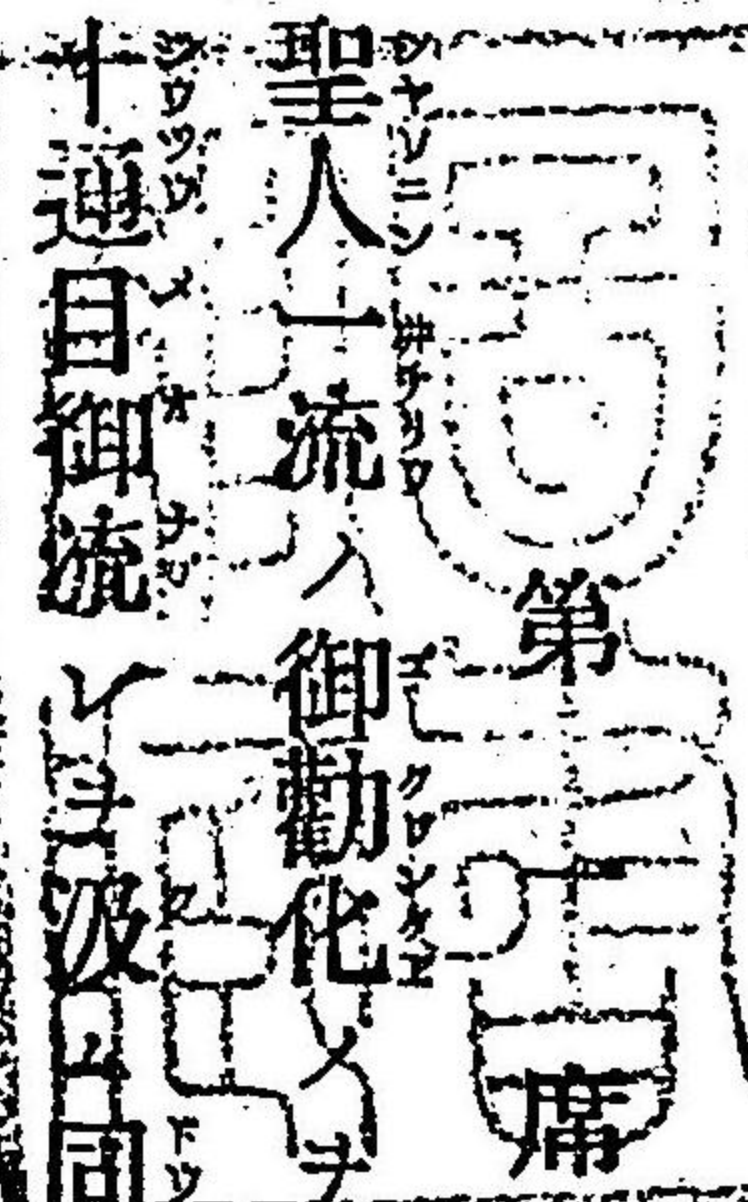 第一席
聖人一流ノ御勸化ノヲ
十通目御流レヲ汲ム同